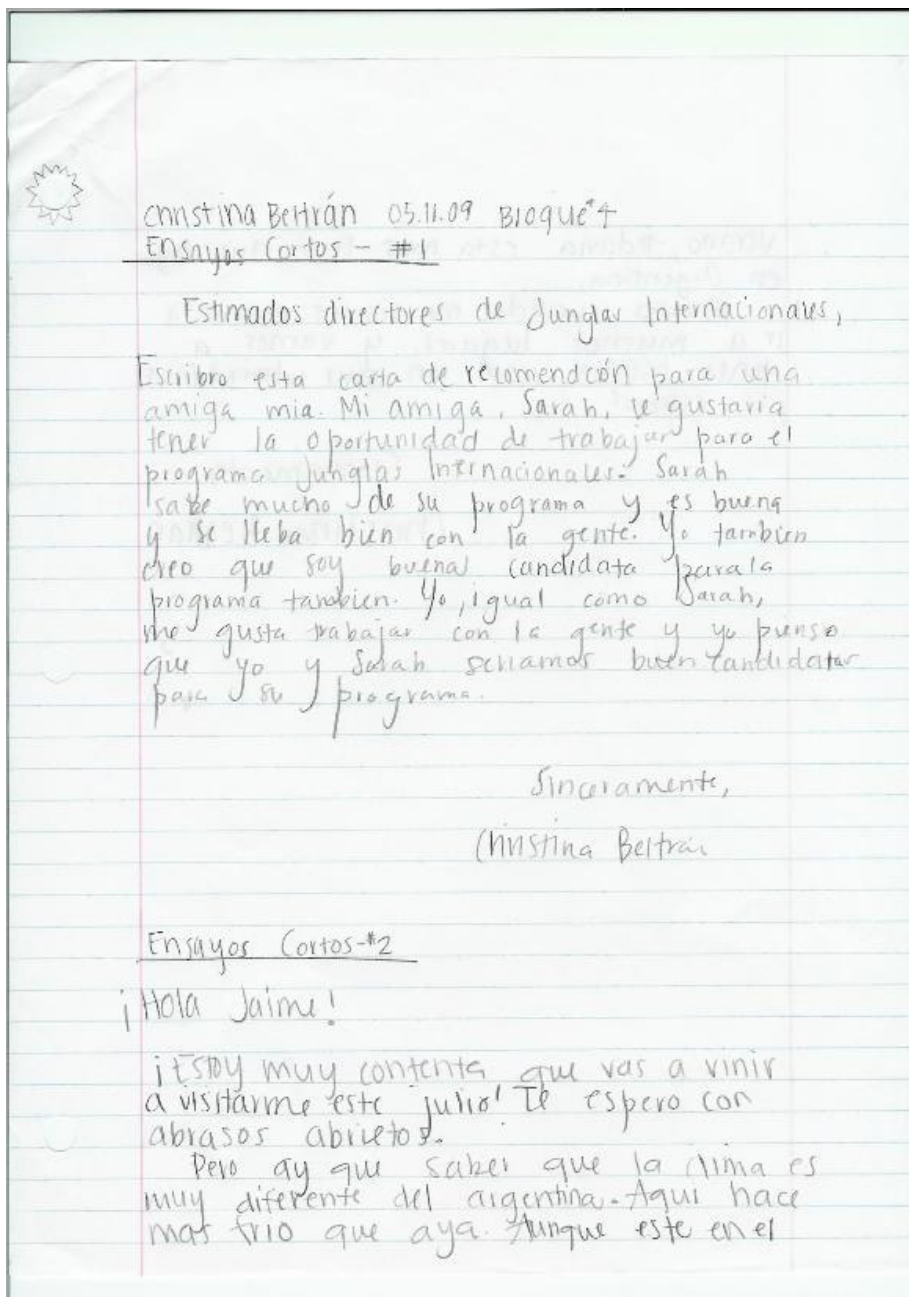 Christina Beltrán 05.11.09 Bloque #4
Ensayos Cortos - #1
Estimados directores de Junglas Internacionales,
Escribro esta carta de recomendcón para una
amiga mia. Mi amiga, Sarah, le gustaria
tener la oportunidad de trabajar para el
programa Junglas Internacionales. Sarah
sabe mucho de su programa y es buena
y se lleba bien con la gente. Yo tambien
creo que soy buena candidata para la
programa tambien. Yo, igual como Sarah,
me gusta trabajar con la gente y yo pienso
que yo y Sarah seriamos buen candidatas
para su programa.
Sinceramente,
Christina Beltrán
Ensayos Cortos-#2
¡Hola Jaime!
¡Estoy muy contenta que vas a vinir
a visitarme este julio! Te espero con
abrasos abrietos.
Pero ay que saber que la clima es
muy diferente del argentina. Aqui hace
mas frio que aya. Aunque este en el